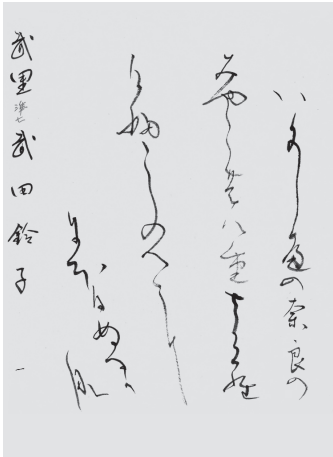 いにし遍の奈良の
みやこの八重さくら
けふこゝのへに
にほひぬるかな
武里 準七 武田鈴子 一